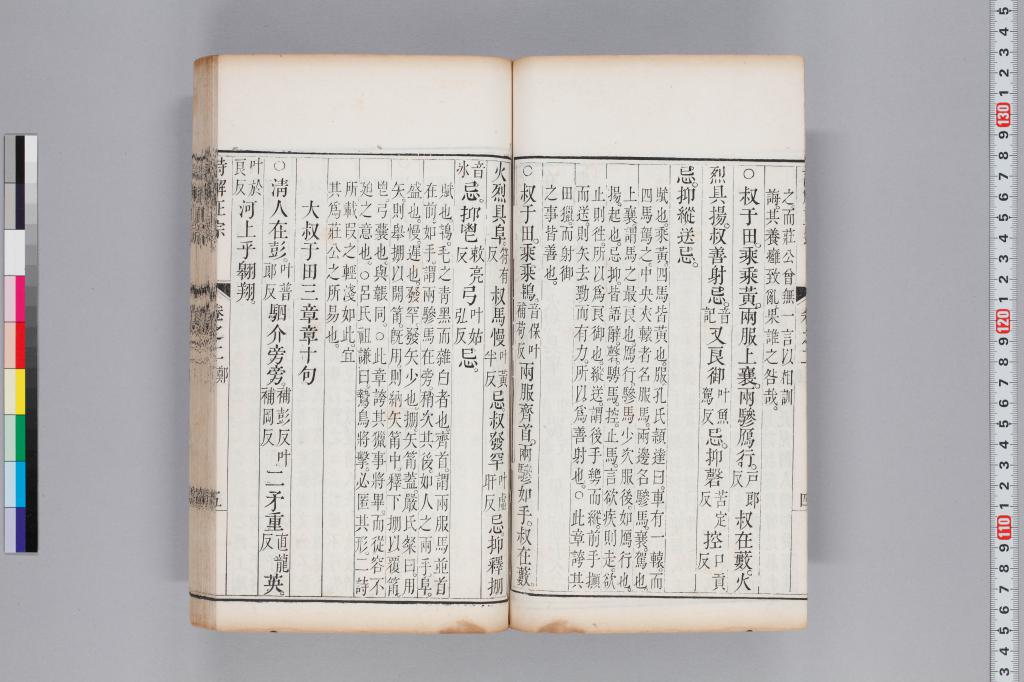 之而莊公曾無一言以相訓
誨其養癰致亂果誰之咎哉
○叔于田乘乘黃兩服上襄兩驂鴈行戸郎反叔在藪火
烈具揚叔善射忌音記又良御叶魚駕反忌抑磬苦定反控口貢反
忌抑縱送忌
賦也乘黃四馬皆黃也服孔氏穎達曰車有一轅而
四馬駕之中央夾轅者名服馬兩邊名驂馬襄駕也
上襄謂馬之最良也鴈行驂馬少次服後如鴈行也
揚起也忌抑皆語辭磬騁馬控止馬言欲疾則走欲
止則往所以爲良御也縱送謂後手勢而縱前手撫
而送則矢去勁而有力所以爲善射也○此章誇其
田獵而射御
之事皆善也
○叔于田乘乘鴇音保叶補苟反兩服齊首兩驂如手叔在藪
火烈具阜符有反叔馬慢叶黃半反忌叔發罕叶虛旰反忌抑釋掤
音氷忌抑鬯敕亮反弓叶姑弘反忌
賦也鴇毛之靑黑而雜白者也齊首謂兩服馬並首
在前如手謂兩驂馬在旁稍次其後如人之兩手阜
盛也慢遲也發罕發矢少也掤矢筩蓋嚴氏粲曰用
矢則舉掤以開筩旣用則納矢筩中釋下掤以覆筩
鬯弓囊也與韔同○此章誇其獵事將畢而從容不
迫之意也○呂氏祖謙曰鷙鳥將擊必匿其形二詩
所載段之輕淺如此宜
其爲莊公之所易也
大叔于田三章章十句
○淸人在彭叶普郞反駟介旁旁補彭反叶補岡反二矛重直龍反英
叶於良反河上乎翶翔
詩解正宗
卷之二
鄭
五
四